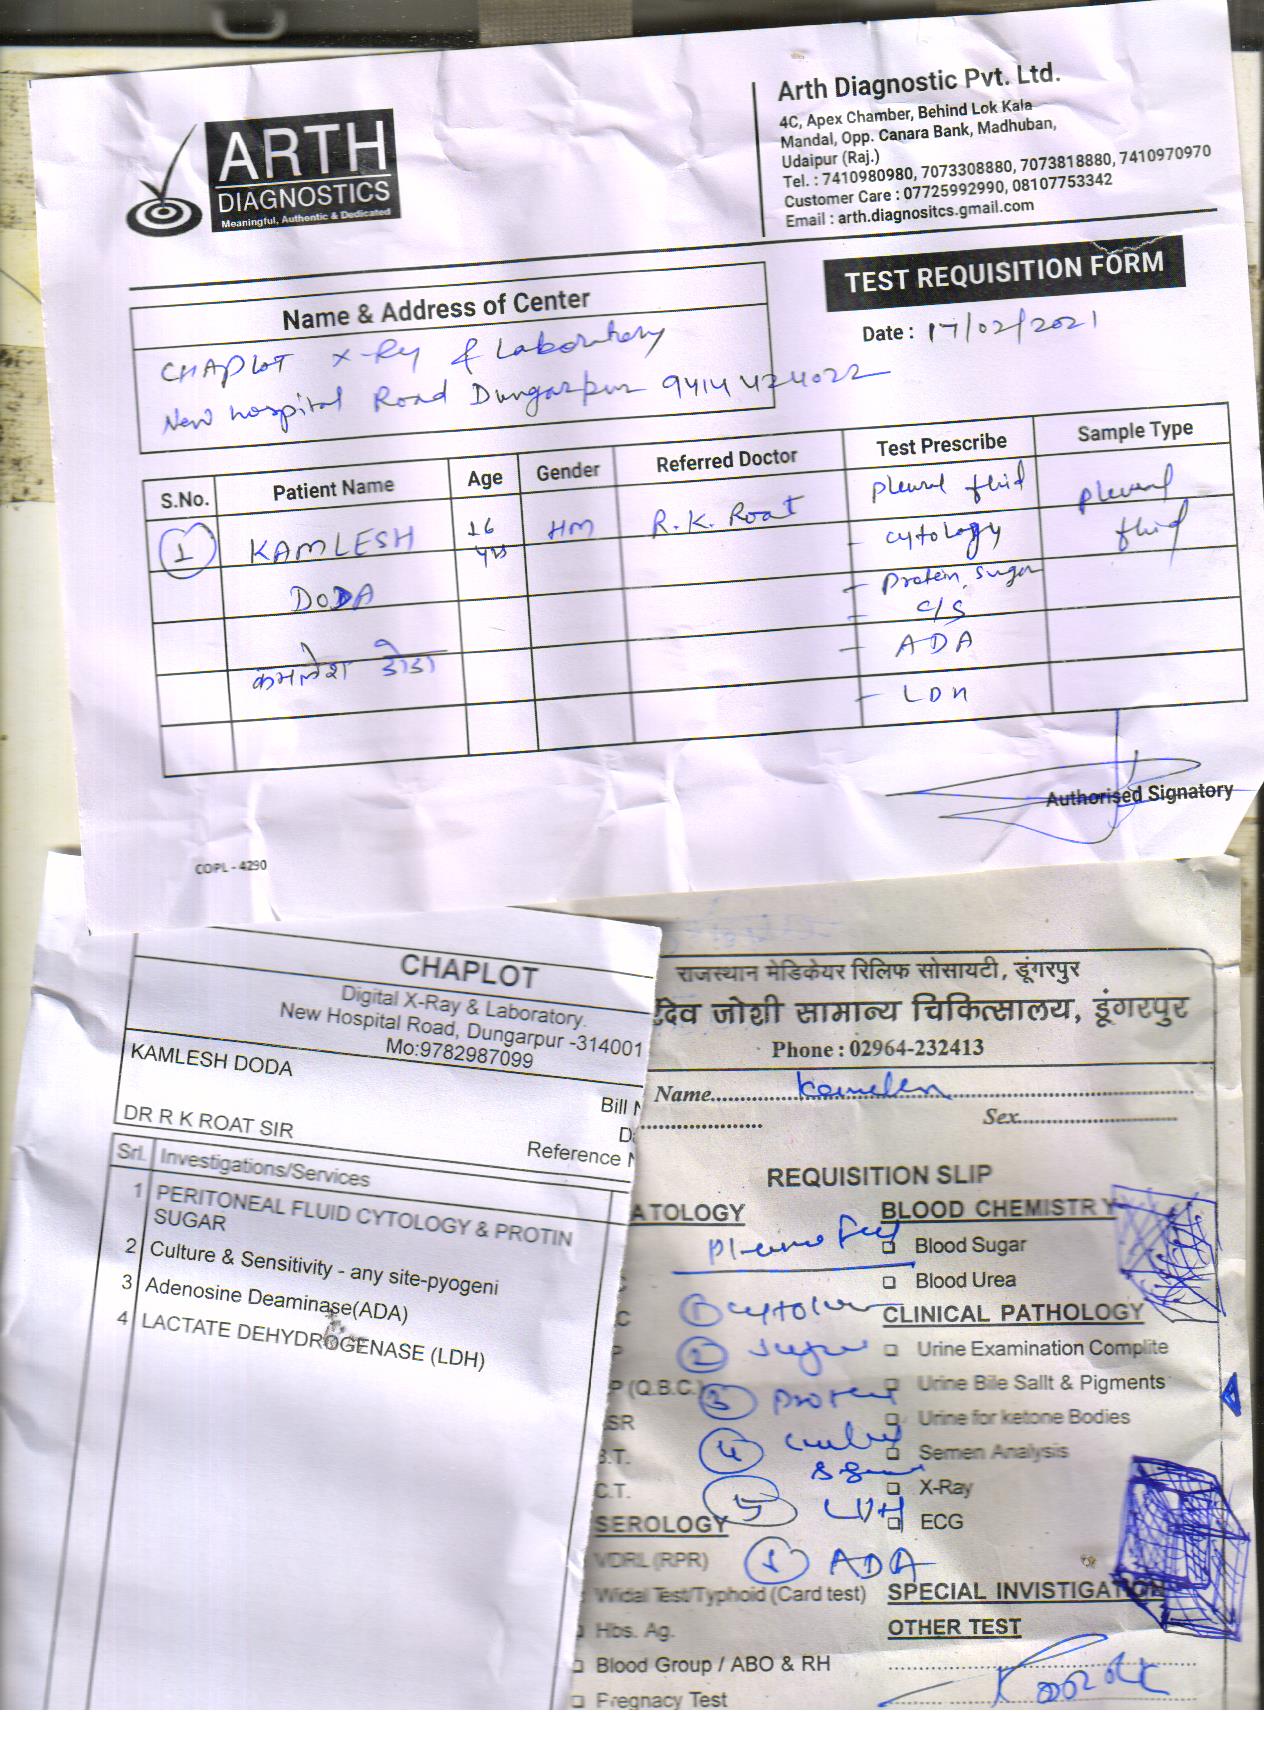 ARTH
DIAGNOSTICS
Meaningful, Authentic & Dedicated
Arth Diagnostic Pvt. Ltd.
4C, Apex Chamber, Behind Lok Kala
Mandal, Opp. Canara Bank, Madhuban,
Udaipur (Raj.)
Tel. : 7410980980, 7073308880, 7073818880, 7410970970
Customer Care : 07725992990, 08107753342
Email : arth.diagnositcs.gmail.com
TEST REQUISITION FORM
Date : 17/02/2021
Name & Address of Center
CHAPLOT X-Ray & Laboratory
New hospital Road Dungarpur 9414424022
S.No. Patient Name Age Gender Referred Doctor Test Prescribe Sample Type
1 KAMLESH 16 HM R.K. Roat pleural fluid pleural
yrs - cytology fluid
DODA - Protein, sugar
- C/S
कमलेश डोडा - ADA
- LDH
Authorised Signatory
COPL - 4290
CHAPLOT
Digital X-Ray & Laboratory.
New Hospital Road, Dungarpur -314001
Mo:9782987099
KAMLESH DODA
Bill N
DR R K ROAT SIR
Reference N
Srl. Investigations/Services
1 PERITONEAL FLUID CYTOLOGY & PROTIN
SUGAR
2 Culture & Sensitivity - any site-pyogeni
3 Adenosine Deaminase(ADA)
4 LACTATE DEHYDROGENASE (LDH)
राजस्थान मेडिकेयर रिलिफ सोसायटी, डूंगरपुर
देव जोशी सामान्य चिकित्सालय, डूंगरपुर
Phone : 02964-232413
Name
Sex
REQUISITION SLIP
ATOLOGY BLOOD CHEMISTRY
Blood Sugar
Blood Urea
C 1 cytology CLINICAL PATHOLOGY
P 2 Sugar Urine Examination Complite
P (Q.B.C.) 3 protein Urine Bile Sallt & Pigments
SR Urine for ketone Bodies
B.T. 4 Semen Analysis
C.T. 5 LDH X-Ray
SEROLOGY ECG
VDRL (RPR) 1 ADA
Widal Test/Typhoid (Card test) SPECIAL INVISTIGATION
Hbs. Ag. OTHER TEST
Blood Group / ABO & RH
Pregnacy Test